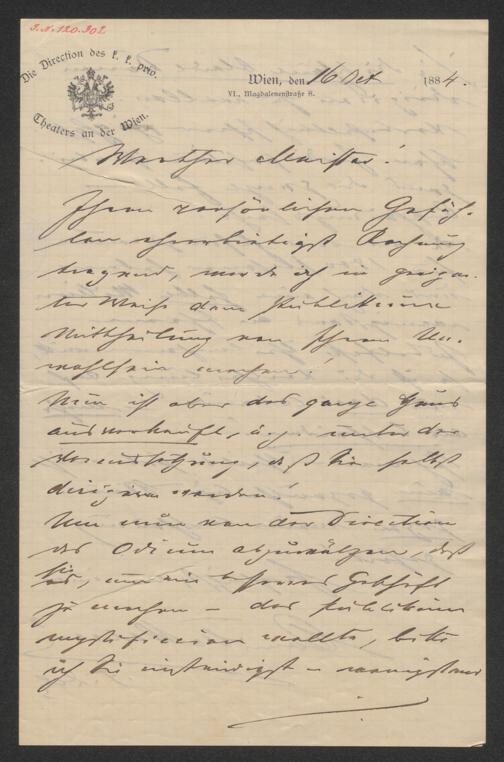 I.N. 120.302
Die Direction des k. k. priv.
Theaters an der Wien.
Wien, den 16 Oct 1884.
VI., Magdalenenstraße 8.
Werther Meister!
Ihrem persönlichen Gefüh-
len ehrerbietigst Rechnung
tragend, werde ich in geeigne-
ter Weise dem Publikum
Mittheilung von Ihrem Un-
wohlsein machen!
Nun ist aber das ganze Haus
ausverkauft, u. z. unter der
Voraussetzung, daß Sie selbst
dirigiren werden!
Um nun von der Direction
das Odium abzuwälzen, daß
sie, um ein besseres Geschäft
zu machen – das Publikum
mystificiren wollte, bitte
ich Sie inständigst – wenigstens